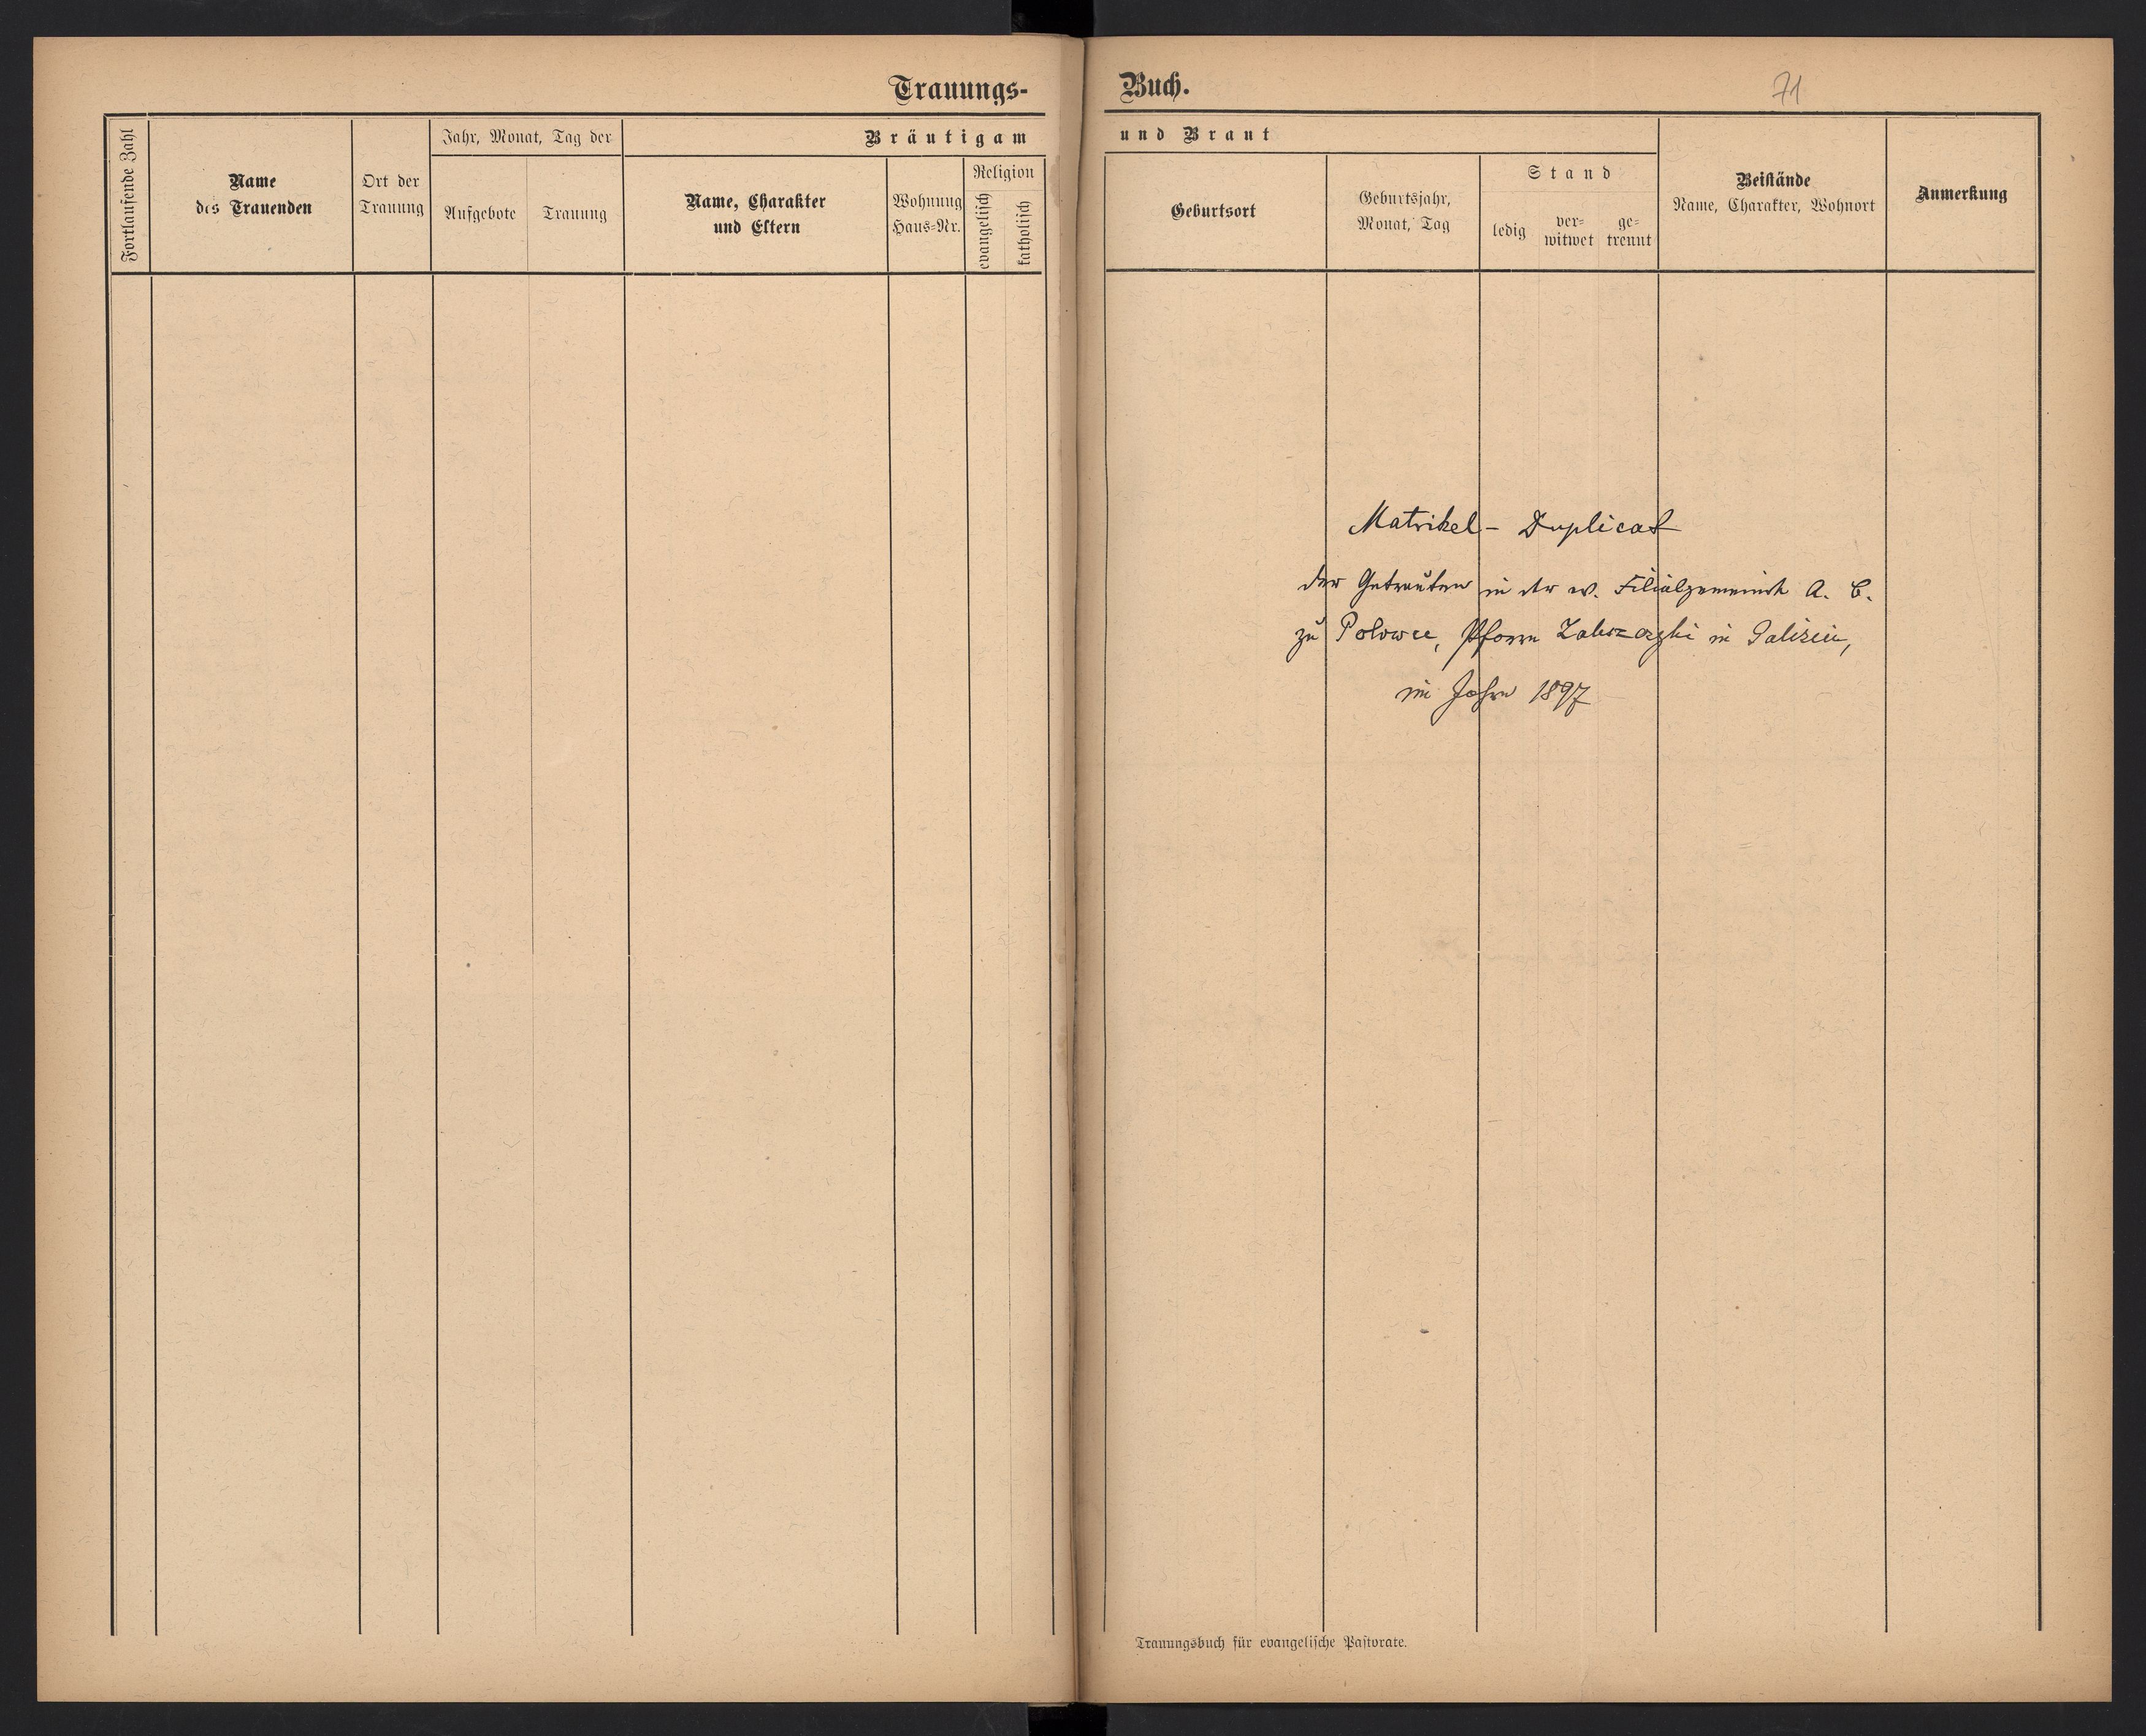 Trauungs-
Buch.
71
Fortlaufende Zahl
Name
des Trauenden
Ort der
Trauung
Jahr, Monat, Tag der
Aufgebote
Trauung
Bräutigam
Name, Charakter
und Eltern
Wohnung
Haus-Nr.
Religion
evangelisch
katholisch
und Braut
Geburtsort
Geburtsjahr,
Monat, Tag
Stand
ledig
ver-
witwet
ge-
trennt
Beistände
Name, Charakter, Wohnort
Anmerkung
Matrikel - Duplicat
der Getrauten in der ev. Filialgemeinde A. C.
zu Polowce, Pfarre Zaleszczyki in Galizien,
im Jahre 1897
Trauungsbuch für evangelische Pastorate.